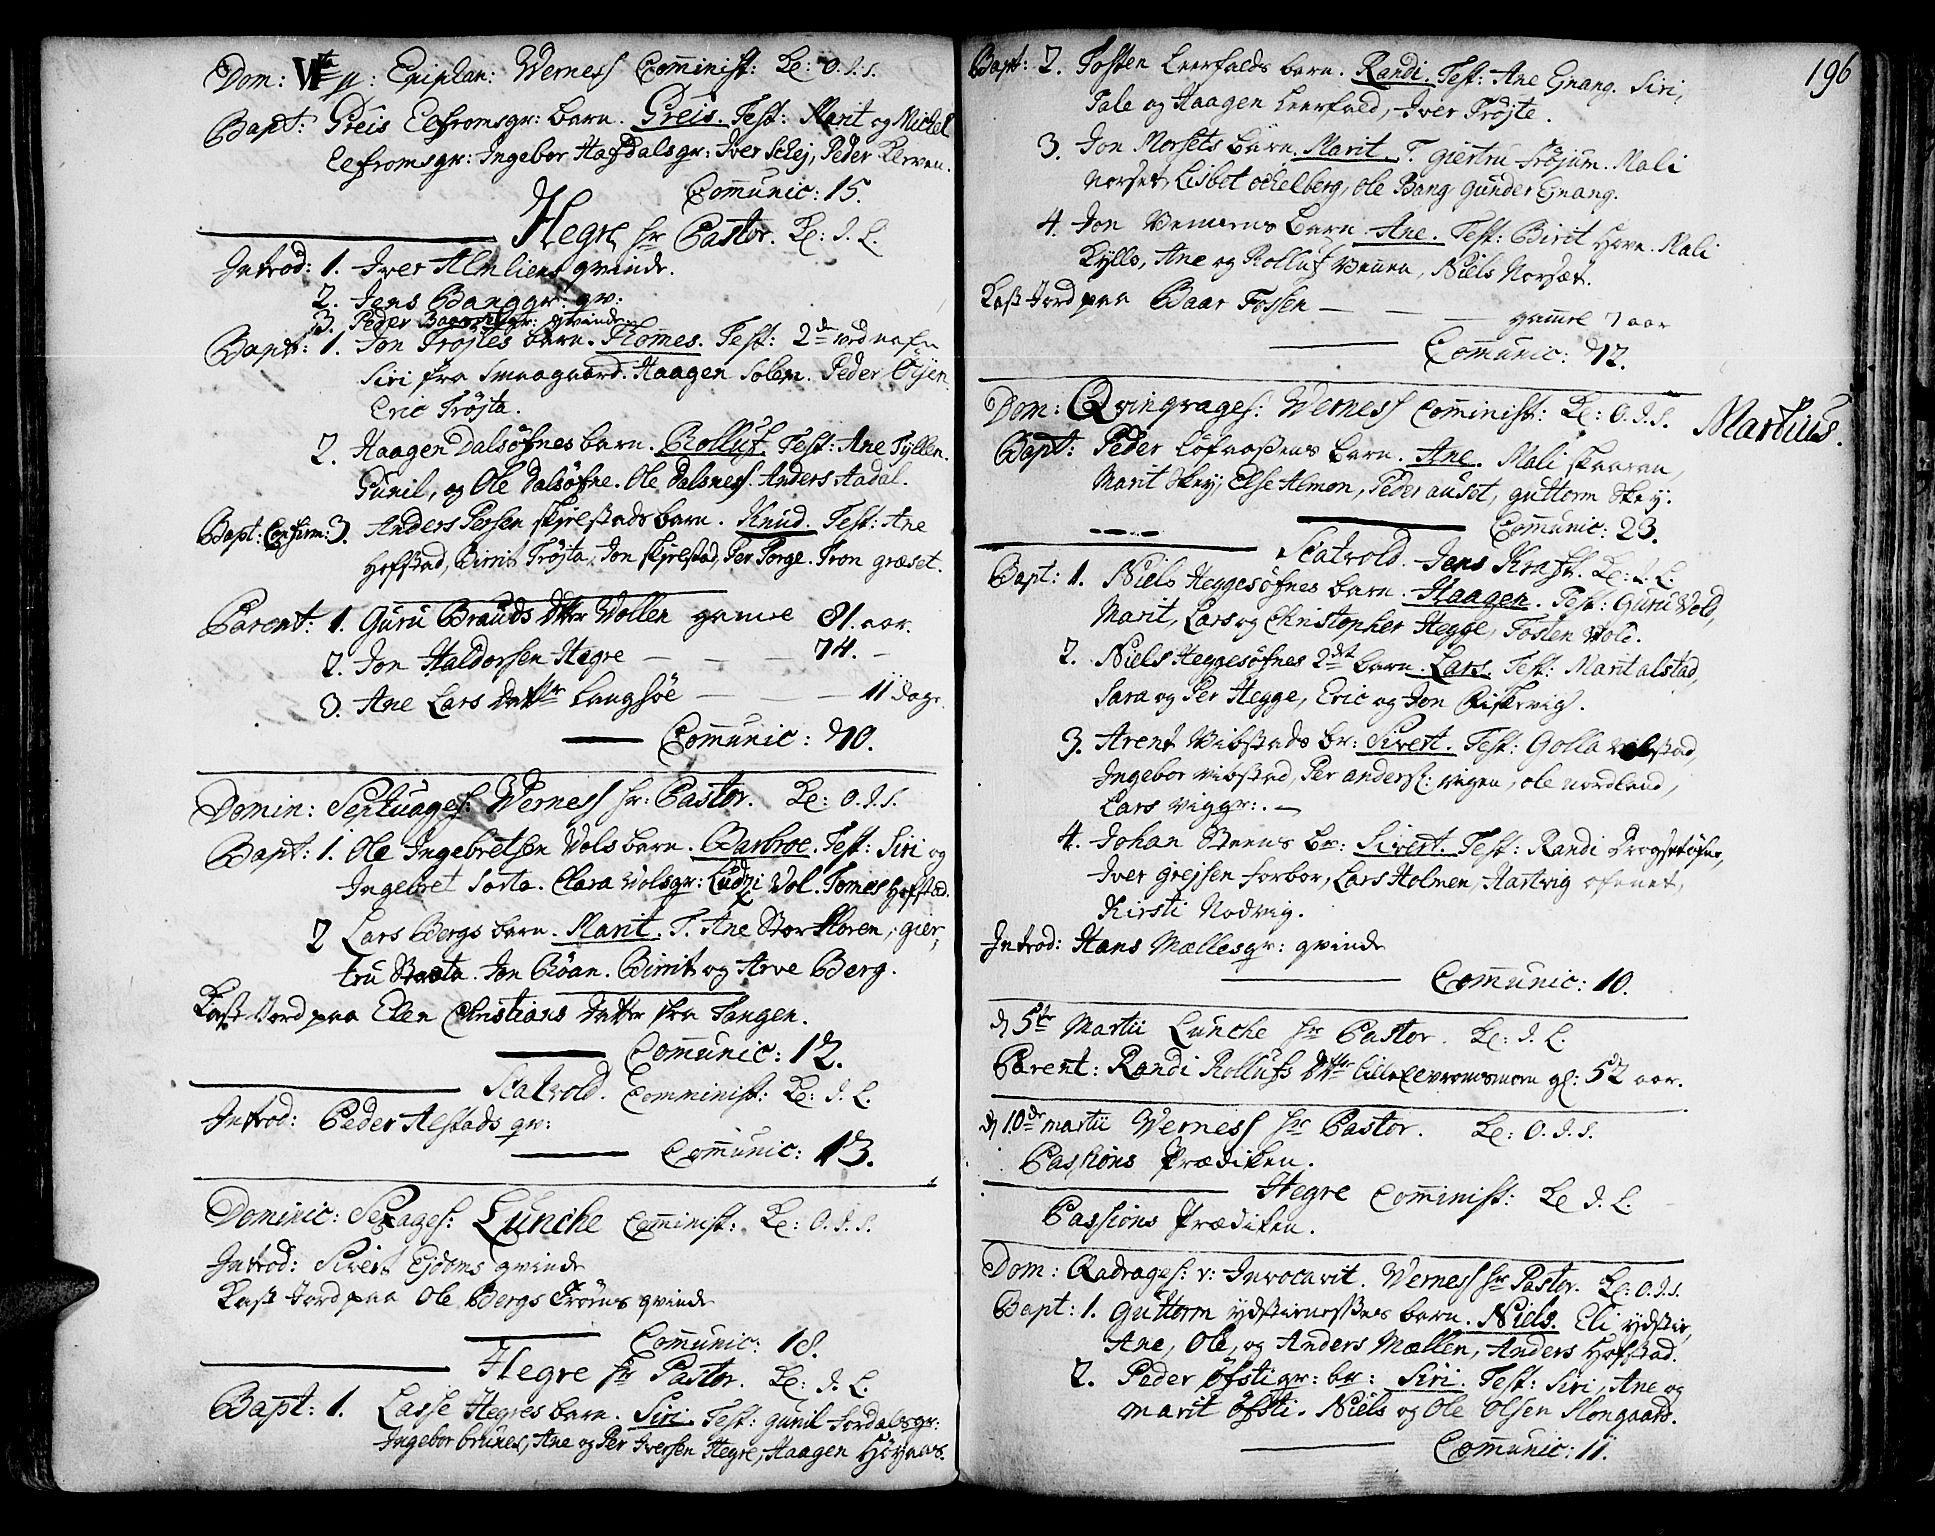 Dom: VIta p: Epiphan: Werness Comminist: Le: O.I.S.
Bapt: Greis Eefromsgr: barn. Greis. Test: Marit og Michel
Eefromsgr: Ingebor Hafdalsgr: Iver Schej, Peder
Comunic: 15.
Hegre hr Pastor. Le: I. L.
Introd: 1. Iver Almliens qvinde.
2. Jens Banggr: qv:
3. Peder qvinde
Bapt: 1. Jon Trøjtes barn. Thomes. Test: 2de ved nafn
Siri fra Smaagaard. Haagen Solem. Peder Øjen.
Eric Trøjta.
2. Haagen Dalsøfnes barn. Rolluf. Test: Ane Fyllen.
Gunil, og Ole Dalsøfne. Ole Dalsness. Anders Aadal.
Bapt: Confirm: 3. Anders Persen skjelstads barn. Knud. Test: Ane
Hofstad, Birrit Trøjta, Jon skjelstad, Per Porge. Tron græset.
Parent: 1. Guru Brauds datter Wollen gamel 81. aar.
2. Jon Haldorsen Hegre — — — 74. —
3. Ane Lars datter Langhøe — — — 11 dage.
Comunic: 70.
Domin: Septuages: Werness hr: Pastor. Le: O.I.S.
Bapt: 1. Ole Ingebretsen Vols barn. Barbroe. Test: Siri og
Ingebret Sorta. Clara Volsgr: Vol. Tomes Hofstad.
2 Lars Bergs barn. Marit. T. Ane Storfloren, gier-
tru. Jon Røan. Birrit og Arve Berg.
Kast Jord paa Elen Christians datter fra Tangen.
Comunic: 12.
Scatvold. Comminist: Le: I. L.
Introd: Peder Alstads qv:
Comunic: 13.
Dominic: Sexages: Lunche Comminist: Le: O.I.S.
Introd: Sivert Ejdoms qvinde
Kast Jord paa Ole Bergs Trøens qvinde
Comunic: 18.
Hegre hr Pastor. Le: I. L.
Bapt: 1. Lasse Hegres barn. Siri. Test: gunil Jordalsgr:
Ingebor brunes, Ane og Per Iversen Hegre, Haagen
196
Bapt: 2. Tosten Leerfalds barn. Randi. Test: Ane Gnang. Siri,
Tale og Haagen Leerfald, Iver Trøjte.
3. Jon Morsets barn. Marit. T. giertru Frøjum. Mali
Norset, Lisbet ochelberg, Ole Bang, gunder Gnang.
4. Jon barn. Ane. Test: Birit Hove. Mali
Kyllo, Ane og Rolluf, Niels Norsæt.
Kast Jord paa Baar Fossen — — — gamel 7 aar
Comunic: 72.
Dom: Qvinqvages: Werness Comminist: Le: O.I.S. Martius.
Bapt: Peder barn. Ane. Mali,
Marit Skej, Else Almon, Peder auset, guttorm Skej.
Comunic: 23.
Scatvold. Jens Kraft. Le: I. L.
Bapt: 1. Niels Heggesøfnes barn. Haagen. Test: Guru Vold,
Marit, Lars og Christopher Hegge, Tosten Vold.
2. Niels Heggesøfnes 2det barn. Lars. Test: Marit alstad,
Sara og Per Hegge, Eric og Jon.
3. Arent Vibstads br: Sivert. Test: Golla,
Ingebor vibstad, Per anders: vigen, ole nordland,
Lars viggr:. —
4. Johan Steens br: Sivert. Test: Randi,
Iver grejsen forbor, Lars Holmen, Hartvig,
Kirsti Nodvig.
Introd: Hans Mællesgr: qvinde
Comunic: 10.
d 5te Martii Lunche hr Pastor. Le: I. L.
Parent: Randi Rollufs dtter gl: 52 aar.
d 10de martii Werness hr Pastor. Le: O.I.S.
Passions Prædiken.
Hegre Comminist: Le I. L.
Passions Prædiken.
Dom: Qadrages: v: Invocavit. Werness hr Pastor. Le: O.I.S.
Bapt: 1. Guttorm barn. Niels. Eli,
Ane, Ole, og Anders Mællen, Anders Hofstad.
2. Peder Øfstigr: br: Siri. Test: Siri, Ane og
Marit Øfsti. Niels og Ole Olsen Mongaard.
Comunic: 11.